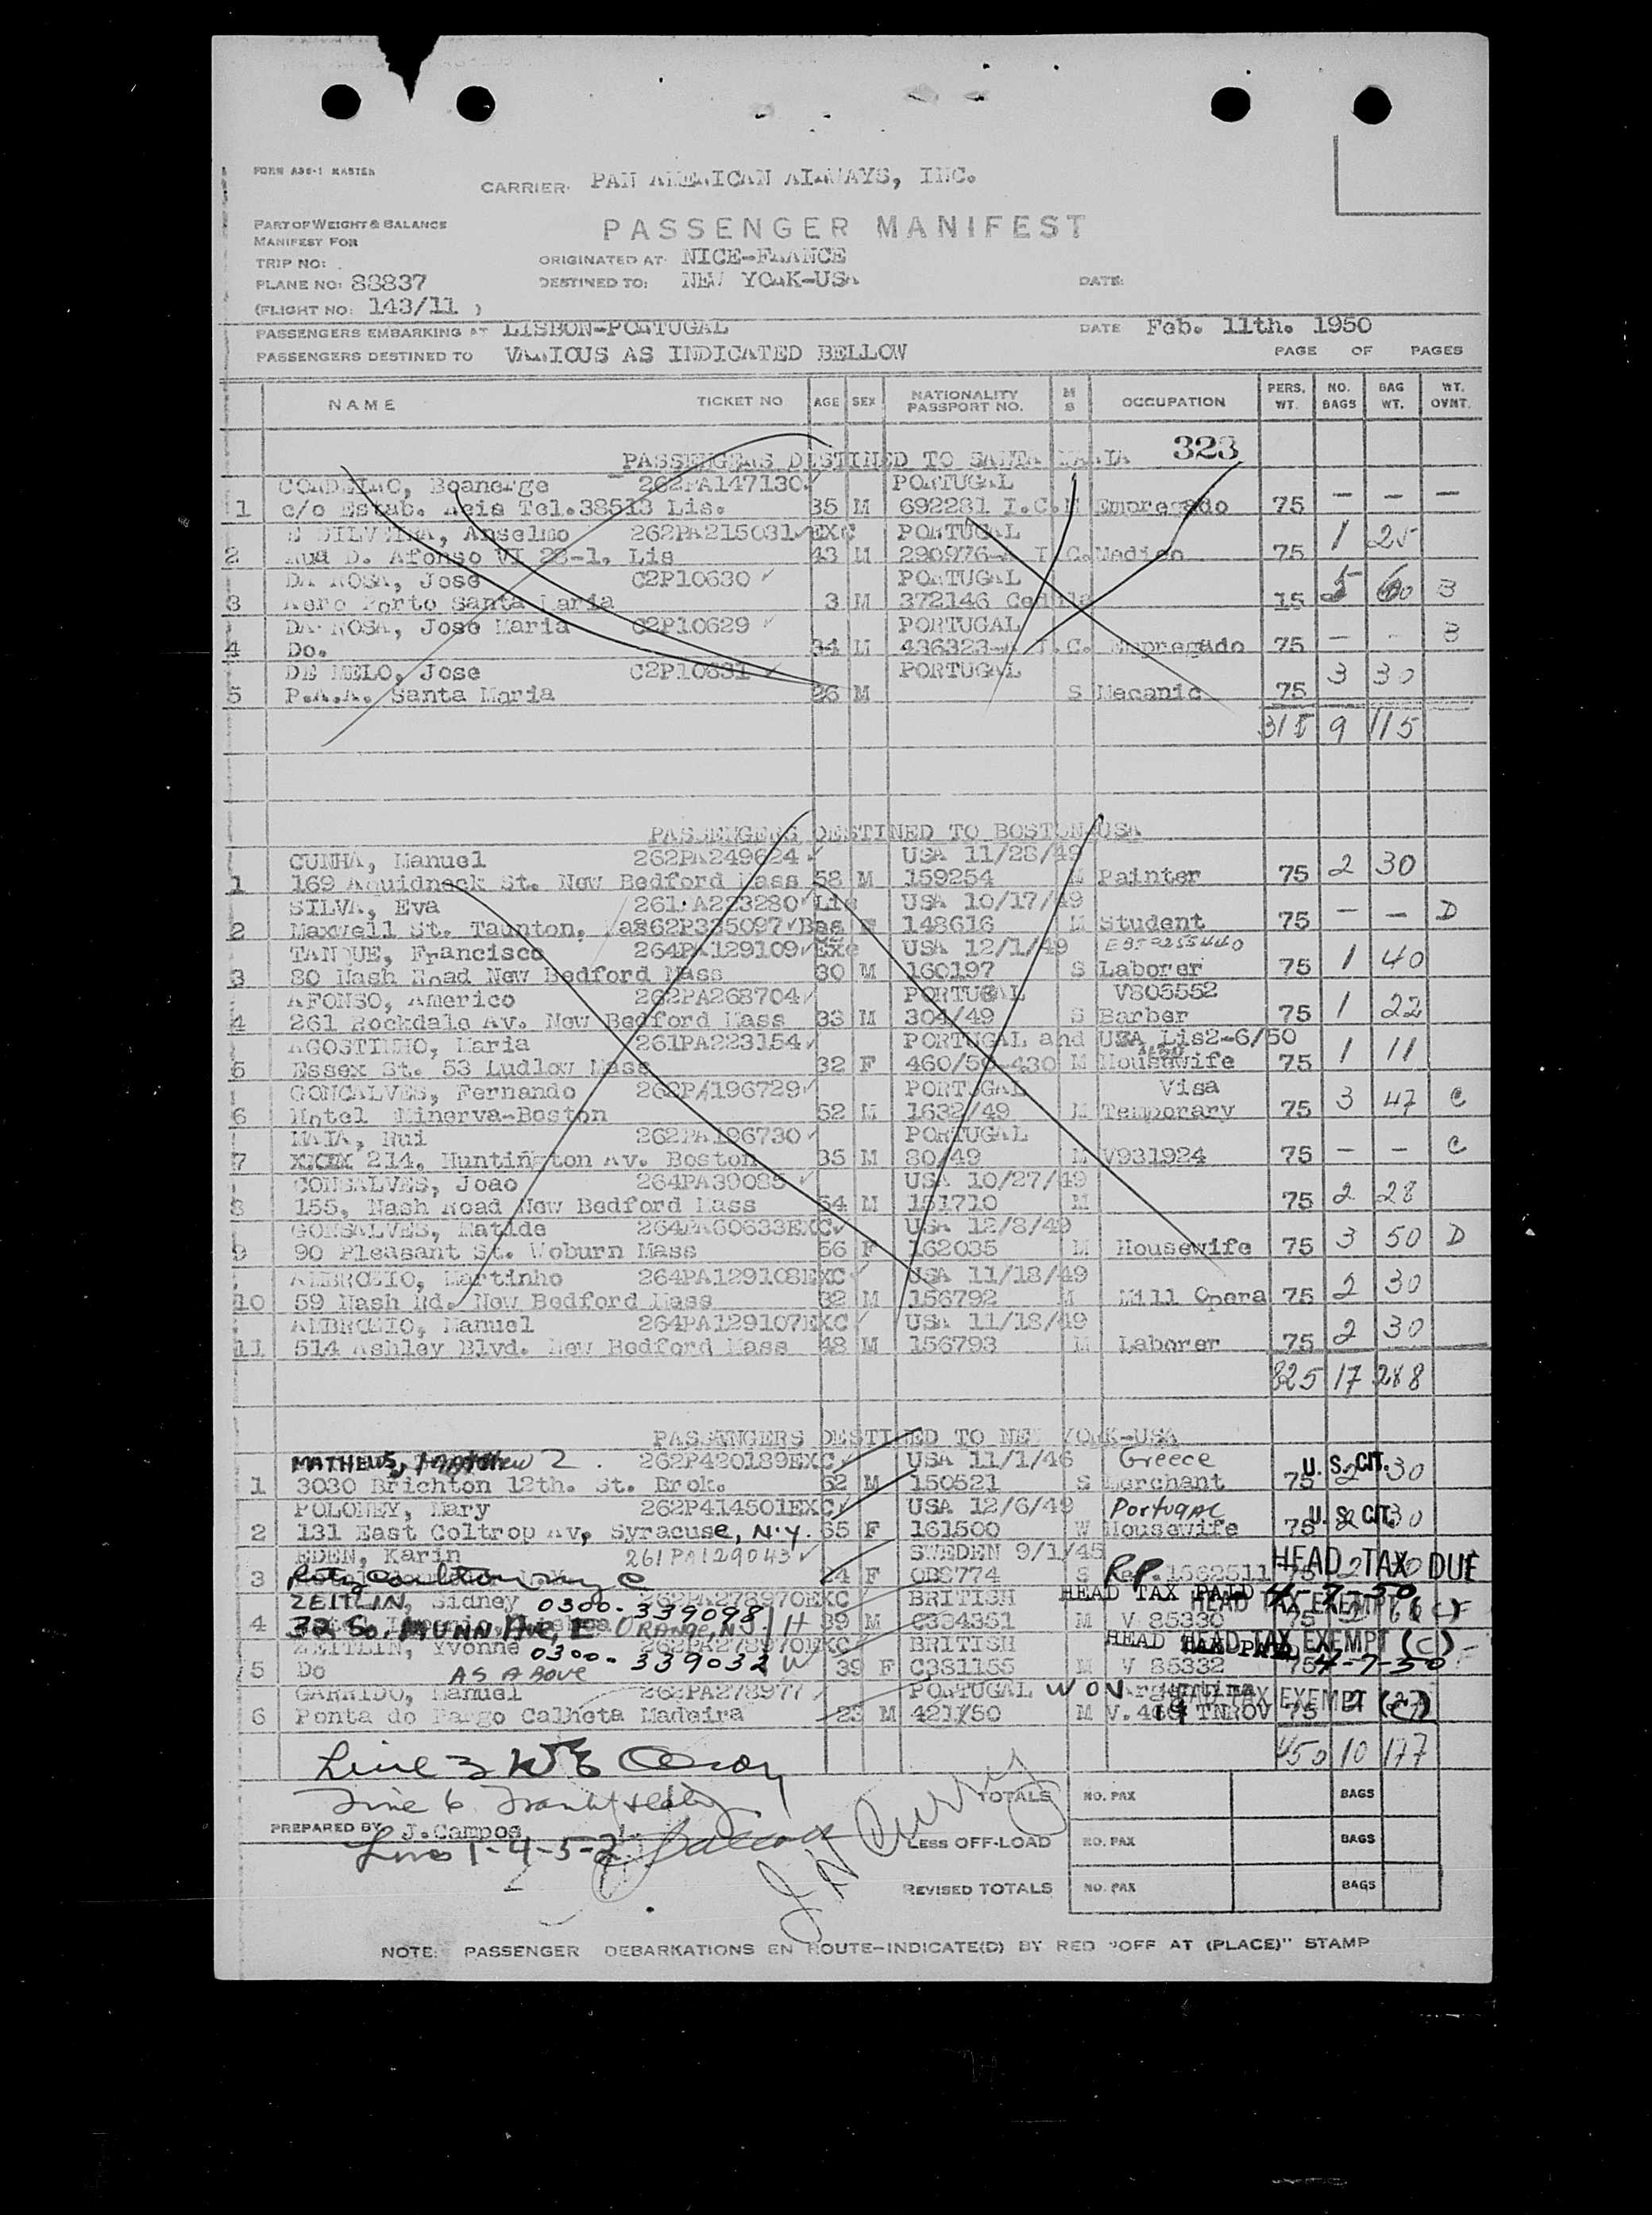 FORM A36-1 MASTER
CARRIER: PAN AMERICAN AIRWAYS, INC.
PART OF WEIGHT & BALANCE
MANIFEST FOR
PASSENGER MANIFEST
TRIP NO:
ORIGINATED AT NICE-FRANCE
PLANE NO: 88837
DESTINED TO: NEW YORK-USA
DATE:
(FLIGHT NO: 143/11 )
PASSENGERS EMBARKING AT LISBON-PORTUGAL
DATE Feb. 11th. 1950
PASSENGERS DESTINED TO VARIOUS AS INDICATED BELLOW
PAGE OF PAGES
NAME TICKET NO AGE SEX NATIONALITY PASSPORT NO. M S OCCUPATION PERS. WT. NO. BAGS BAG WT. WT. OVNT.
PASSENGERS DESTINED TO SANTA MARIA 323
CORDEIRO, Boanerge 262PA147130 PORTUGAL
1 c/o Estab. Tel.38513 Lis. 35 M 692281 I.C. M Empregado 75 — — —
E SILVEIRA, Anselmo 262PA215031 EXC PORTUGAL 1 25
2 Rua D. Afonso VI 28-1, Lis 43 M 290976-A I.C. Medico 75
DA ROSA, Jose C2P10630 PORTUGAL
3 Aero Porto Santa Maria 3 M 372146 Cedula 15 5 60 B
DA ROSA, Jose Maria C2P10629 PORTUGAL
4 Do. 34 M 436323-A I.C. Empregado 75 — - B
DE MELO, Jose C2P10631 PORTUGAL 3 30
5 P.A.A. Santa Maria 26 M S Mecanic 75
315 9 115
PASSENGERS DESTINED TO BOSTON USA
CUNHA, Manuel 262PA249624 USA 11/28/49
1 169 Aquidneck St. New Bedford Mass 58 M 159254 M Painter 75 2 30
SILVA, Eva 261PA223280 Lis USA 10/17/49
2 Maxwell St. Taunton, Mas 262P335097 Bos F 148616 M Student 75 — — D
TANQUE, Francisco 264PA129109 EXC USA 12/1/49
3 80 Nash Road New Bedford Mass 30 M 160197 S Laborer 75 1 40
AFONSO, Americo 262PA268704 PORTUGAL V805552
4 261 Rockdale Av. New Bedford Mass 33 M 304/49 S Barber 75 1 22
AGOSTINHO, Maria 261PA223154 PORTUGAL and USA Lis2-6/50
5 Essex St. 53 Ludlow Mass 32 F 460/50-430 M Housewife 75 1 11
GONCALVES, Fernando 262PA196729 PORTUGAL Visa
6 Hotel Minerva-Boston 52 M 1632/49 M Temporary 75 3 47 C
MAIA, Rui 262PA196730 PORTUGAL
7 214, Huntington Av. Boston 35 M 80/49 M V931924 75 — — C
CONSALVES, Joao 264PA39085 USA 10/27/49
8 155, Nash Road New Bedford Mass 54 M 151710 M 75 2 28
GONSALVES, Matide 264PA60633EXC USA 12/8/49
9 90 Pleasant St. Woburn Mass 56 F 162035 M Housewife 75 3 50 D
AMBROZIO, Martinho 264PA129108EXC USA 11/18/49
10 59 Nash Rd. New Bedford Mass 32 M 156792 M Mill Opera 75 2 30
AMBROZIO, Manuel 264PA129107EXC USA 11/18/49
11 514 Ashley Blvd. New Bedford Mass 48 M 156793 M Laborer 75 2 30
825 17 288
PASSANGERS DESTINED TO NEW YORK-USA
MATHEWS, Matthew Z. 262P420189EXC USA 11/1/46 Greece U. S. CIT.
1 3030 Brichton 12th. St. Brok. 62 M 150521 S Merchant 75 2 30
POLONEY, Mary 262P414501EXC USA 12/6/49 Portugal U. S. CIT.
2 131 East Coltrop Av, Syracuse, N.Y. 65 F 161500 W Housewife 75 2 30
EDEN, Karin 261PA129043 SWEDEN 9/1/45 HEAD TAX DUE
3 Ritz Carlton 24 F OB8774 S R.P. 1562511 75
ZEITLIN, Sidney 0300-339098 262PA278970EXC BRITISH HEAD TAX PAID 4-7-50 HEAD TAX EXEMPT (C)
4 32 So. MUNN Ave, E. ORANGE, N.J. H 39 M C334351 M V 85330 75
ZEITLIN, Yvonne 0300-339032 W 262PA278970EXC BRITISH HEAD TAX EXEMPT (C)
5 Do AS ABOVE 39 F C381155 M V 85332 75 4-7-50
GARRIDO, Manuel 262PA278977 PORTUGAL Argentina HEAD TAX EXEMPT
6 Ponta do Pargo Calheta Madeira 23 M 421/50 M 75
450 10 177
Line 3
Line 6
TOTALS NO. PAX BAGS
PREPARED BY J.Campos
Lines 1-4-5-2
LESS OFF-LOAD NO. PAX BAGS
REVISED TOTALS NO. PAX BAGS
NOTE: PASSENGER DEBARKATIONS EN ROUTE-INDICATE(D) BY RED "OFF AT (PLACE)" STAMP